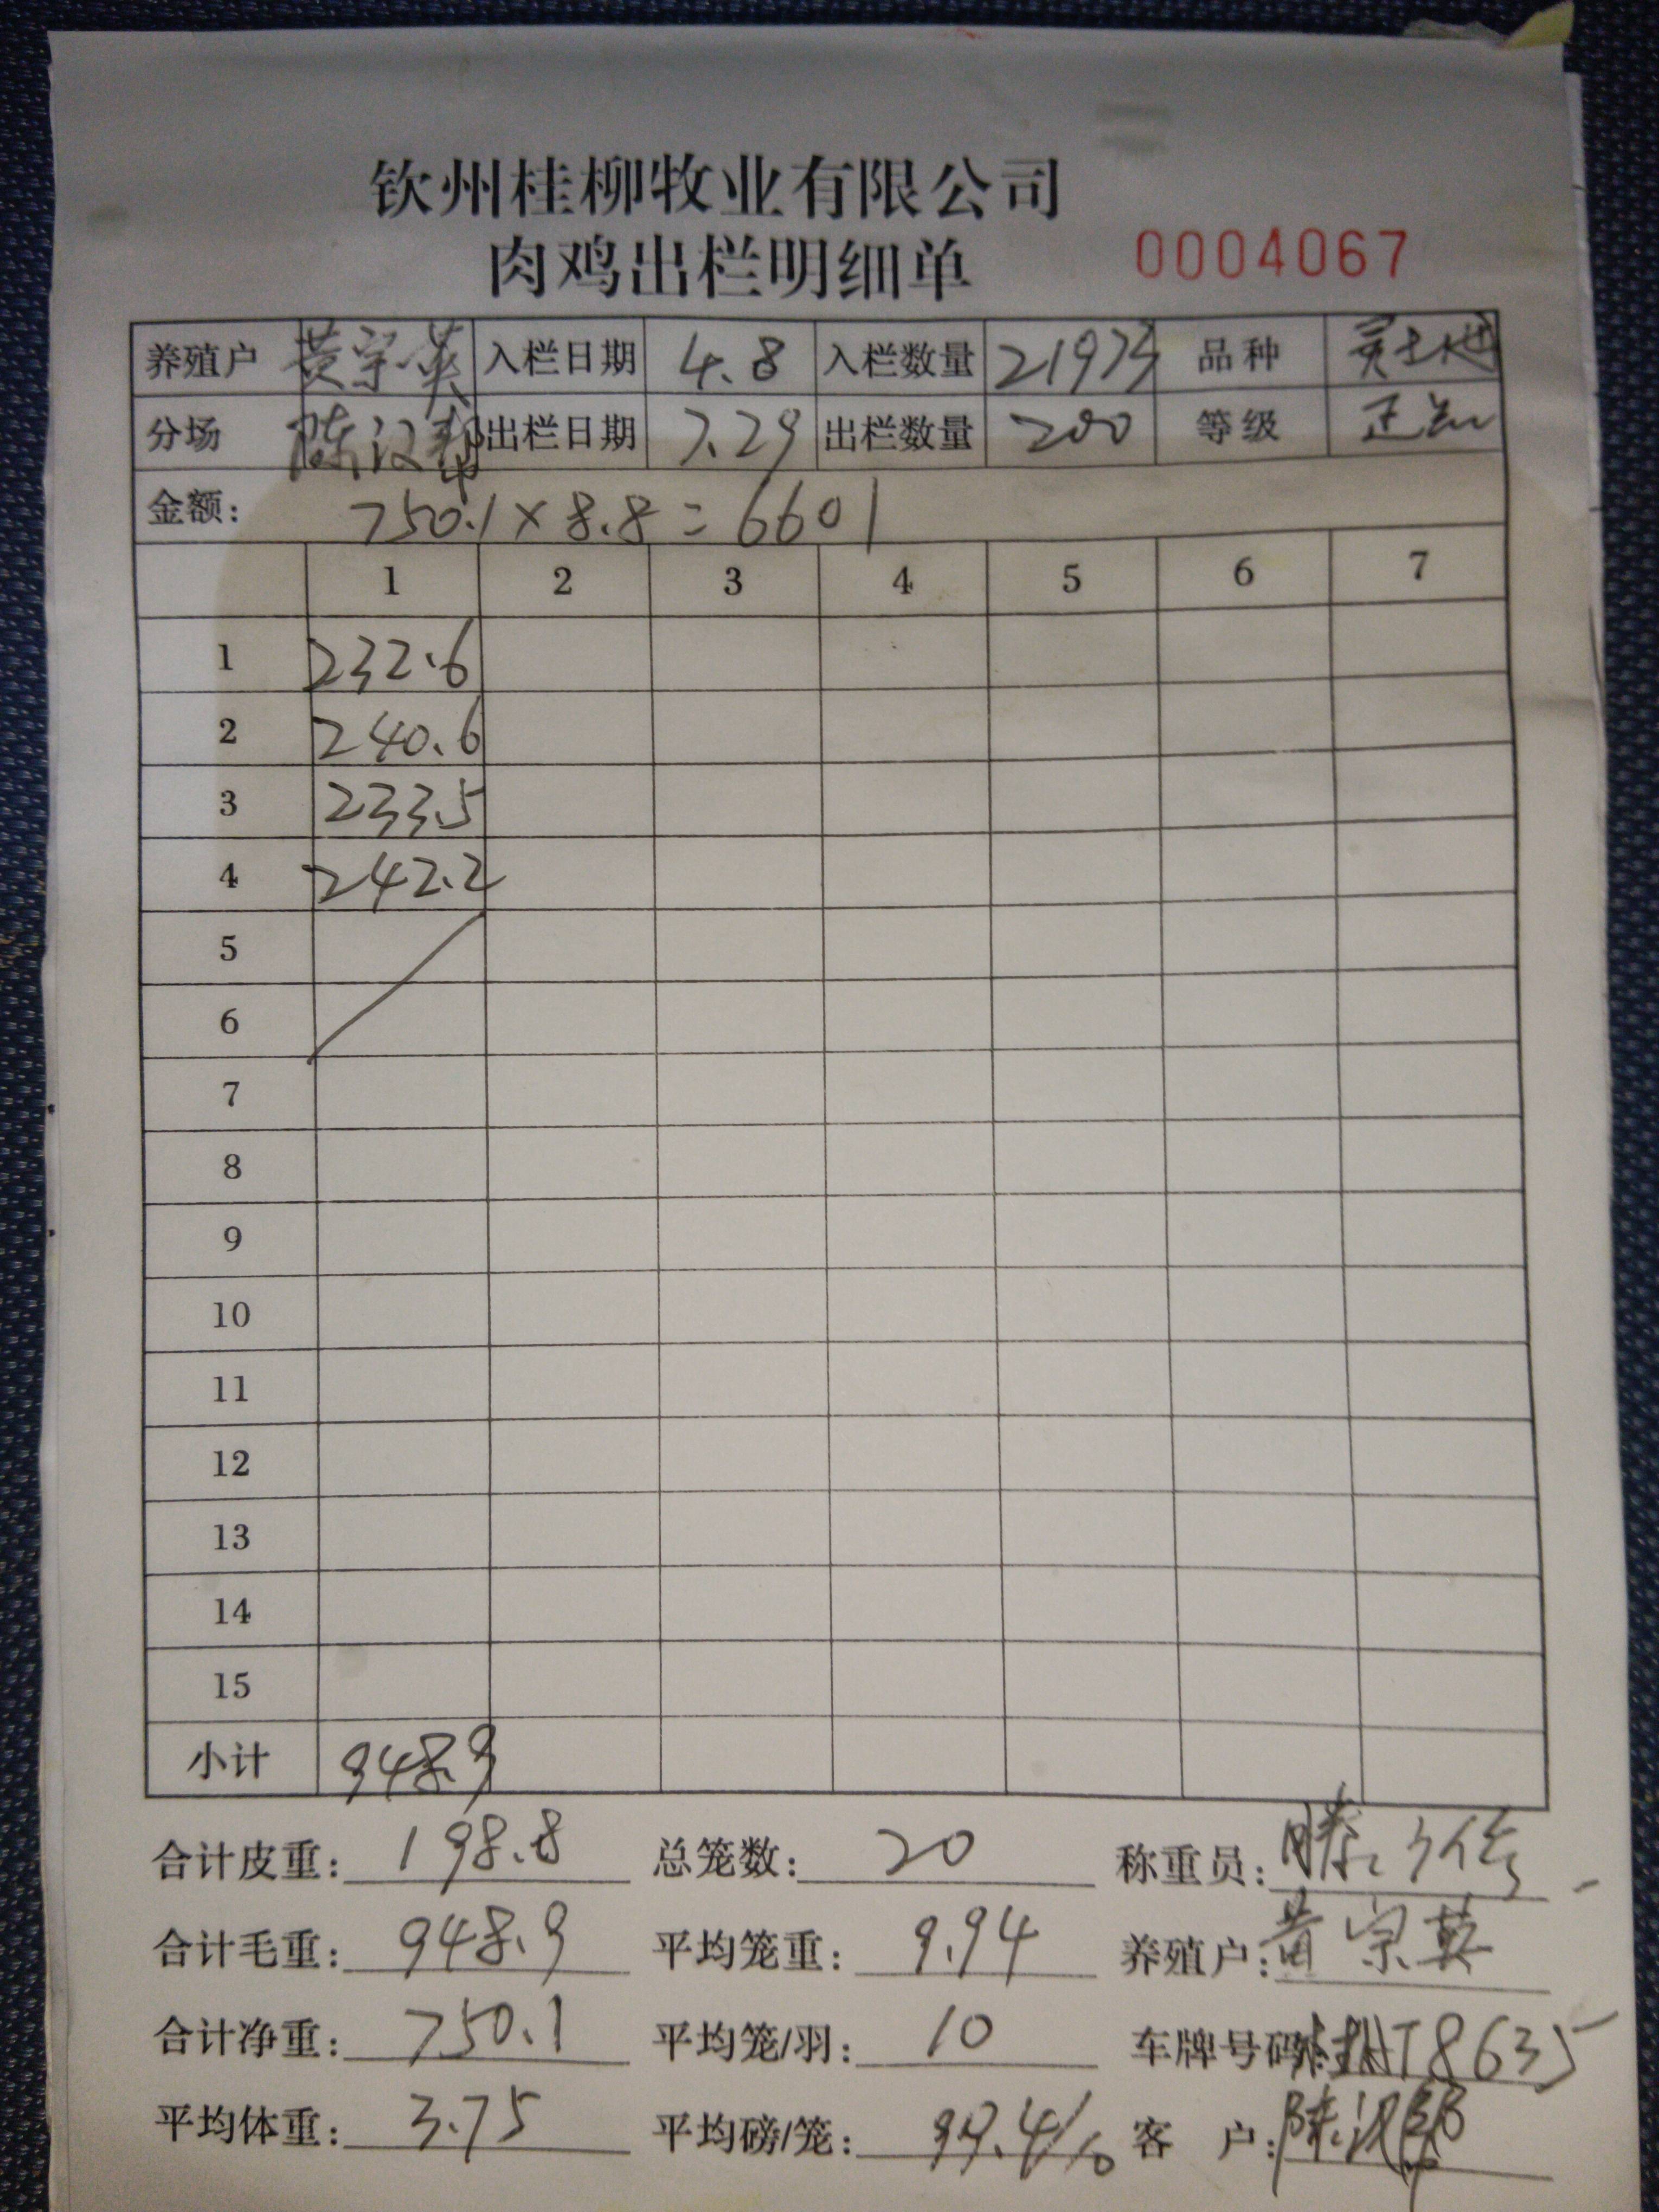 钦州桂柳牧业有限公司
肉鸡出栏明细单 0004067
养殖户 黄宗英 入栏日期 4.8 入栏数量 21975 品种
分场 陈汉帮 出栏日期 7.29 出栏数量 200 等级
金额: 750.1×8.8=6601
1 2 3 4 5 6 7
1 232.6
2 240.6
3 233.5
4 242.2
5
6
7
8
9
10
11
12
13
14
15
小计 948.9
合计皮重: 198.8 总笼数: 20 称重员:
合计毛重: 948.9 平均笼重: 9.94 养殖户: 黄宗英
合计净重: 750.1 平均笼/羽: 10 车牌号码 T8635
平均体重: 3.75 平均磅/笼: 客 户: 陈汉帮